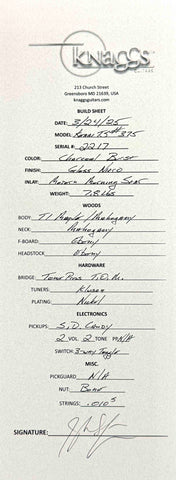 Knaggs
GUITARS
213 Church Street
Greensboro MD 21639, USA
knaggsguitars.com
BUILD SHEET
DATE: 3/24/25
MODEL: Kenai T5 #375
SERIAL#: 2217
COLOR: Charcoal Burst
FINISH: Gloss Nitro
INLAY: Morning Star
WEIGHT: 7.8 lbs
WOODS
BODY: T1 Maple / Mahogany
NECK: Mahogany
F-BOARD: Ebony
HEADSTOCK: Ebony
HARDWARE
BRIDGE: Tone Pros T.O.M.
TUNERS: Kluson
PLATING: Nickel
ELECTRONICS
PICKUPS: S.D. Candy
2 VOL: 2 TONE PP: N/A
SWITCH: 3-way Toggle
MISC.
PICKGUARD: N/A
NUT: Bone
STRINGS: .010s
SIGNATURE: